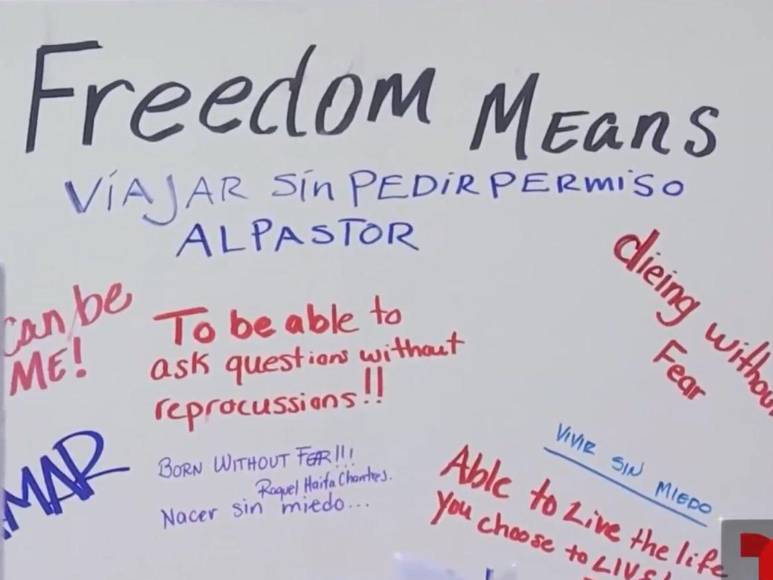 Freedom Means
VÍAJAR Sin PEDIR PERMISO
AL PASTOR
can be
ME!
To be able to
ask questions without
reprocussions!!
dieing without
Fear
MAR
BORN WITHOUT FEAR!!!
Raquel Haifa
Nacer sin miedo...
VIVIR SIN MIEDO
Able to Live the life
you choose to LIVE!